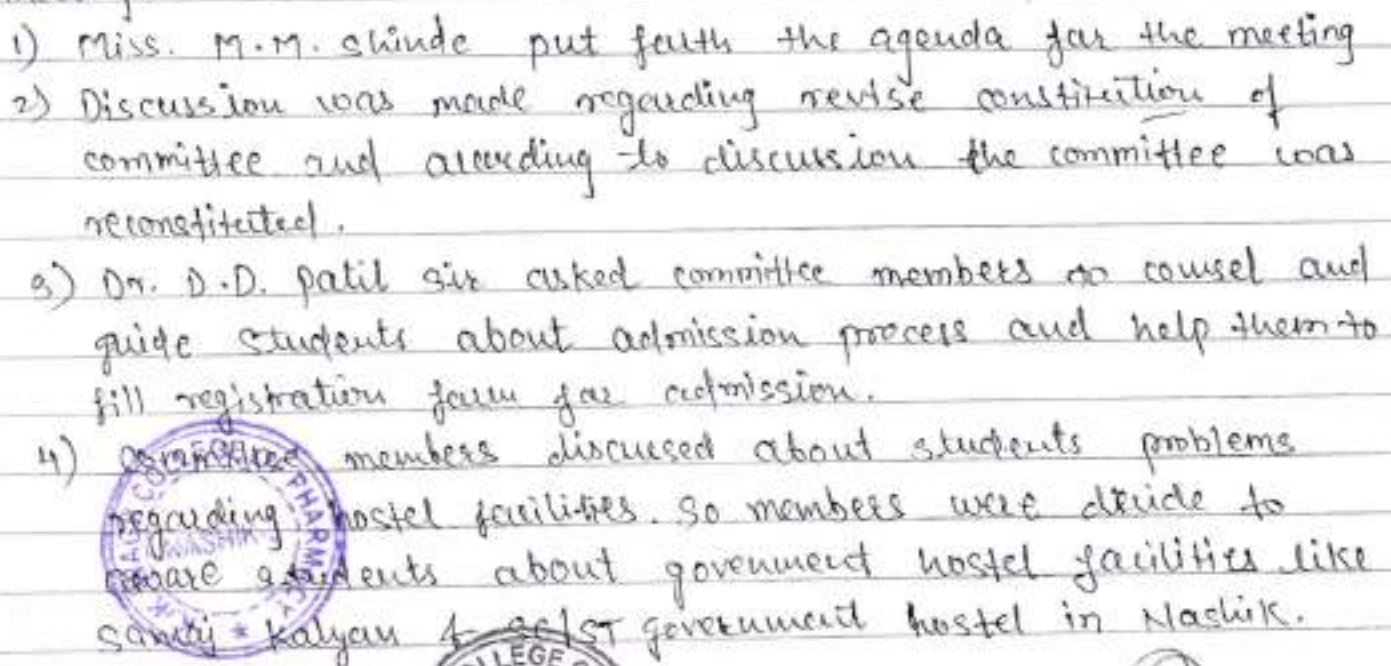 1) Miss. M.M. Shinde put forth the agenda for the meeting
2) Discussion was made regarding revise constitution of
committee and according to discussion the committee was
reconstituted.
3) Dr. D.D. Patil sir asked committee members to counsel and
guide students about admission process and help them to
fill registration form for admission.
4) Committee members discussed about students problems
regarding hostel facilities. So members were decide to
aware students about government hostel facilities like
Samaj Kalyan & SC/ST government hostel in Nashik.
PHARMACY
NASHIK
COLLEGE